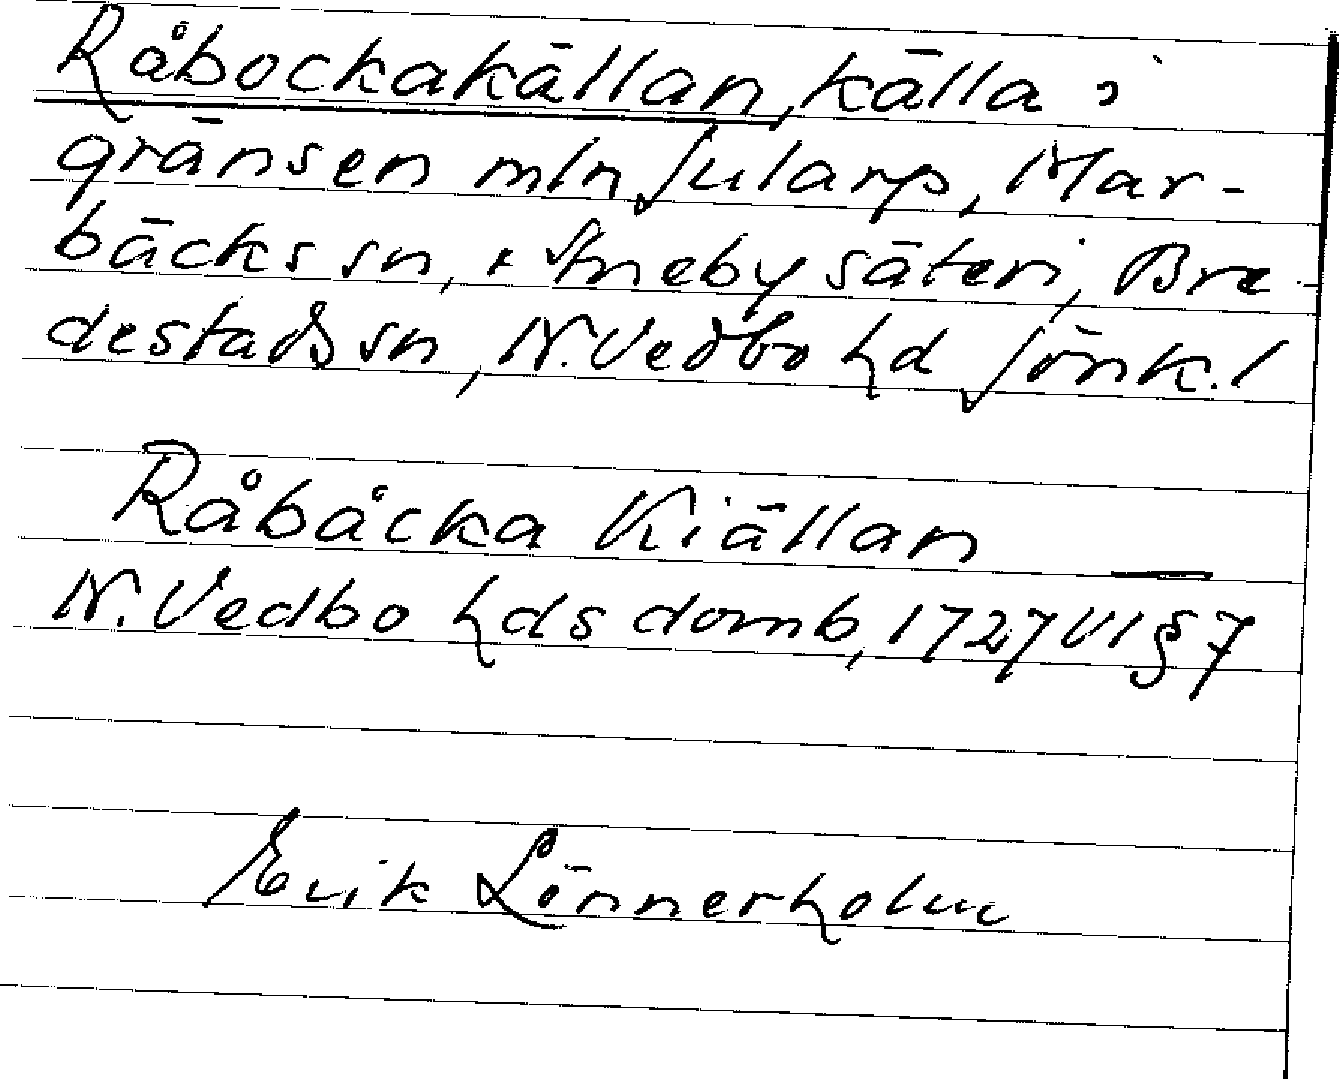 Råbockakällan, källa i
gränsen mln Jularp, Mar-
bäcks sn, x Anebysäteri, Bre-
destads sn, N. Vedbo hd Jönk. l
Råbåcka Kiällan —
N. Vedbo hds domb, 1727 VI § 7
Erik Lönnerholm